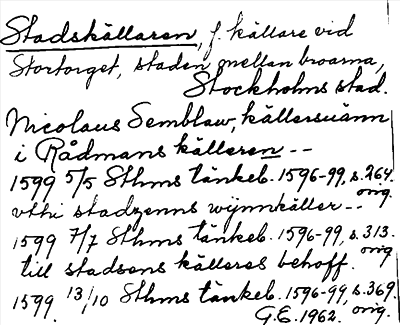 Stadskällaren, f. källare vid
Stortorget, staden mellan broarna,
Stockholms stad.
Nicolaus Semblaw, källersuänn
i Rådmans källeren --
1599 5/5 Sthms tänkeb. 1596-99, s. 264.
orig.
vthi stadzenns wÿnnkäller --
1599 7/7 Sthms tänkeb. 1596-99, s. 313.
orig
till stadsens källeres behoff.
1599 13/10 Sthms tänkeb. 1596-99, s. 369.
G.E. 1962. orig.